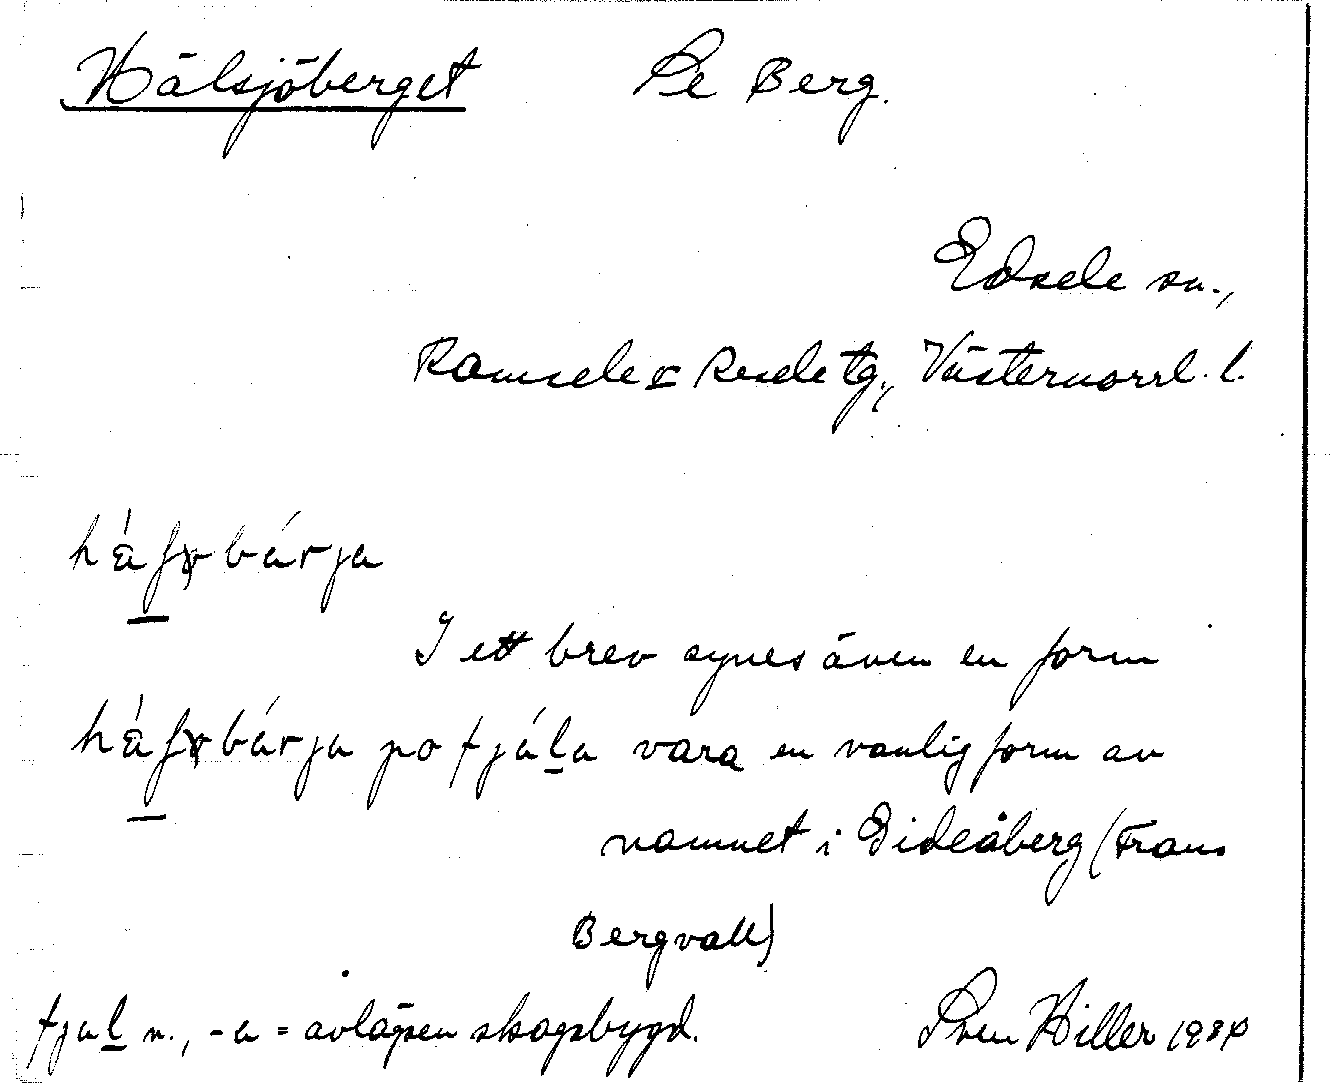 Hälsjöberget Se Berg.
Edsele sn.,
Ramsele o Resele tg., Västernorrl. l.
bárja
I ett brev synes även en form
bárja po fjáḻa vara en vanlig form av
namnet i Eideåberg (Frans
Bergvall)
fjaḻ n., -a = avlägsen skogsbygd. Sven Hiller